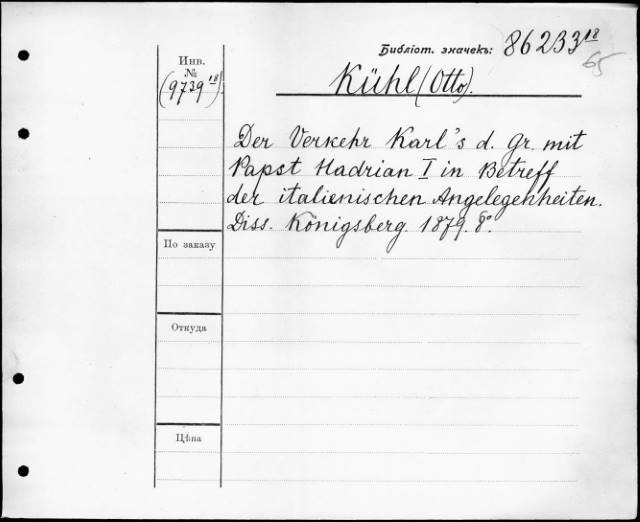 Библіот. значекъ: 86233¹⁸
65
Инв.
№
(9739¹⁸)
Kühl (Otto).
Der Verkehr Karl's d. Gr. mit
Papst Hadrian I in Betreff
der italienischen Angelegenheiten.
Diss. Königsberg. 1879. 8°.
По заказу
Откуда
Цѣна